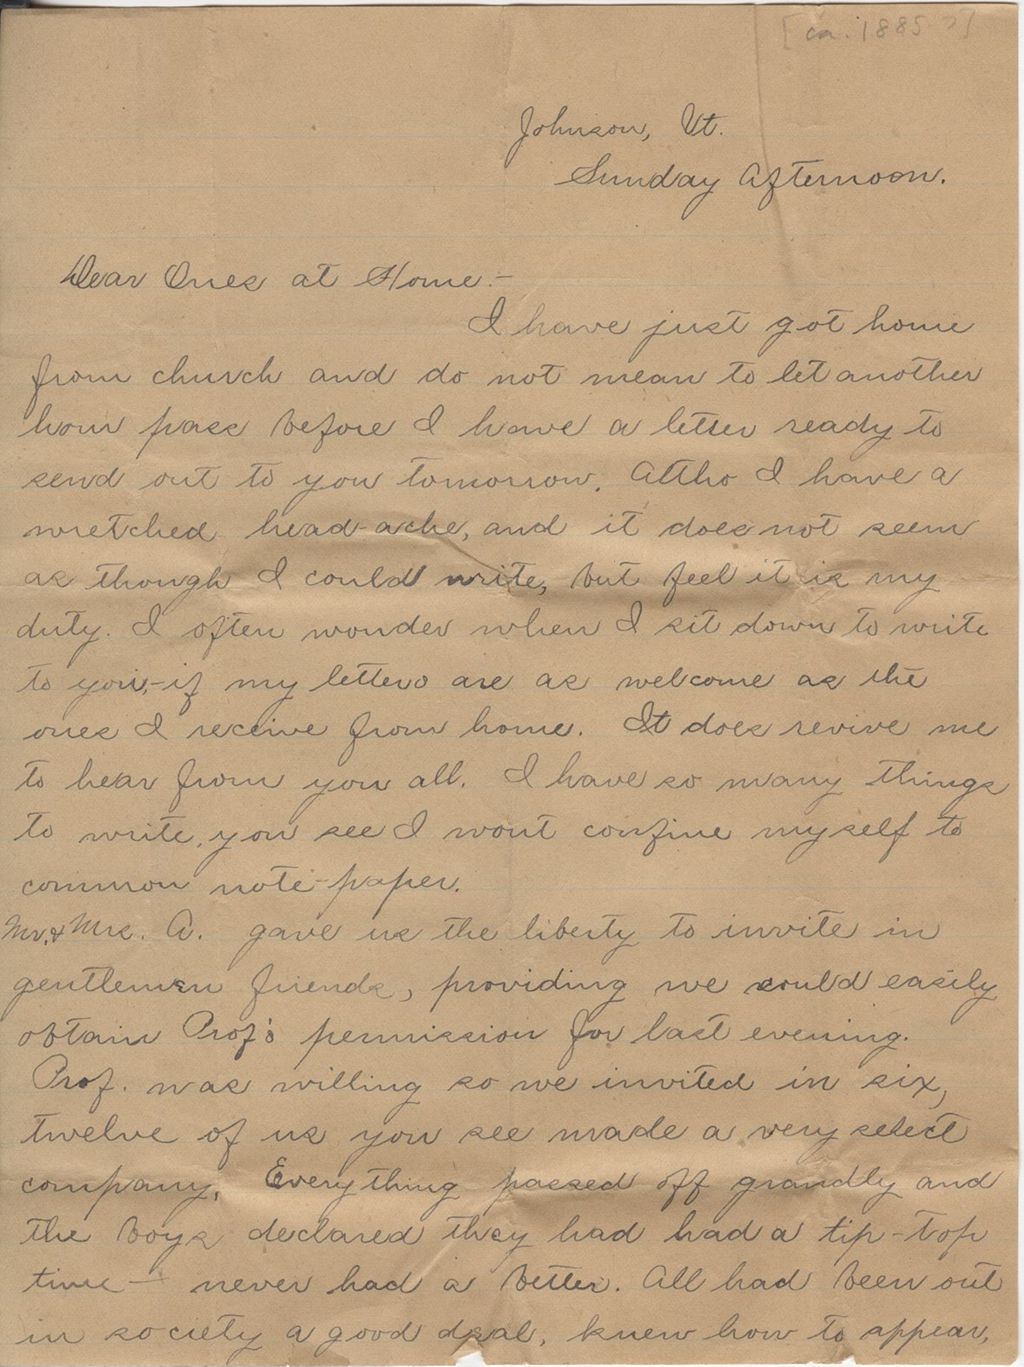 [ca. 1885?]
Johnson, Vt.
Sunday Afternoon.
Dear Ones at Home:-
I have just got home
from church and do not mean to let another
hour pass before I have a letter ready to
send out to you tomorrow. Altho I have a
wretched head-ache, and it does not seem
as though I could write, but feel it is my
duty. I often wonder when I sit down to write
to you,-if my letters are as welcome as the
ones I receive from home. It does revive me
to hear from you all. I have so many things
to write, you see I wont confine myself to
common note-paper.
Mr. & Mrs. A. gave us the liberty to invite in
gentlemen friends, providing we could easily
obtain Prof's permission for last evening.
Prof. was willing so we invited in six,
twelve of us you see made a very select
company. Everything passed off grandly and
the boys declared they had had a tip-top
time - never had a better. All had been out
in society a good deal, knew how to appear,